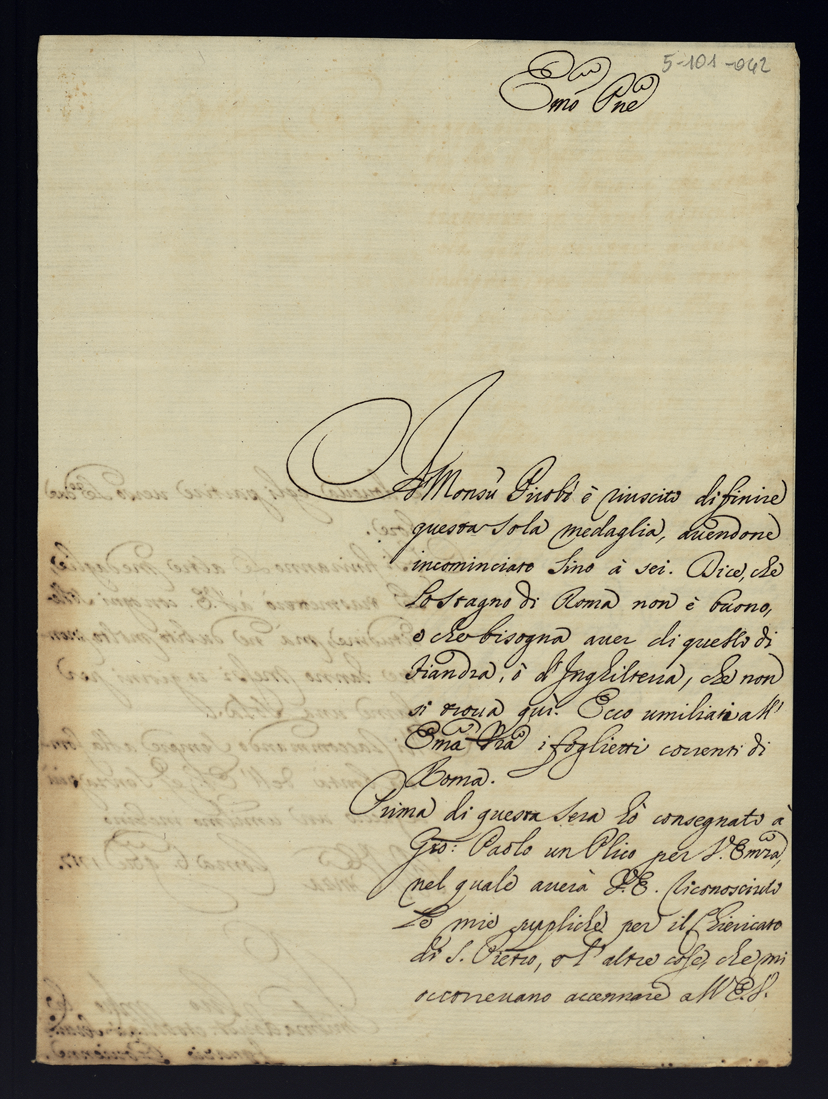 5-101-042
Emo Pne
A Monsù Pirobò è riuscito di finire
questa sola medaglia, avendone
incominciato sino à sei. Dice, che
lo stagno di Roma non è buono,
e che bisogna aver di quello di
Fiandra, ò d'Inghilterra, che non
si trova quì. Ecco umiliati all'
Emã Vrã i foglietti correnti di
Roma.
Prima di questa sera hò consegnato à
Gio: Paolo un Plico per V. Emza,
nel quale averà V.E. riconosciuto
le mie suppliche per il Chiericato
di S. Pietro, e l'altre cose, che mi
occorrevano accennare all'E.V.